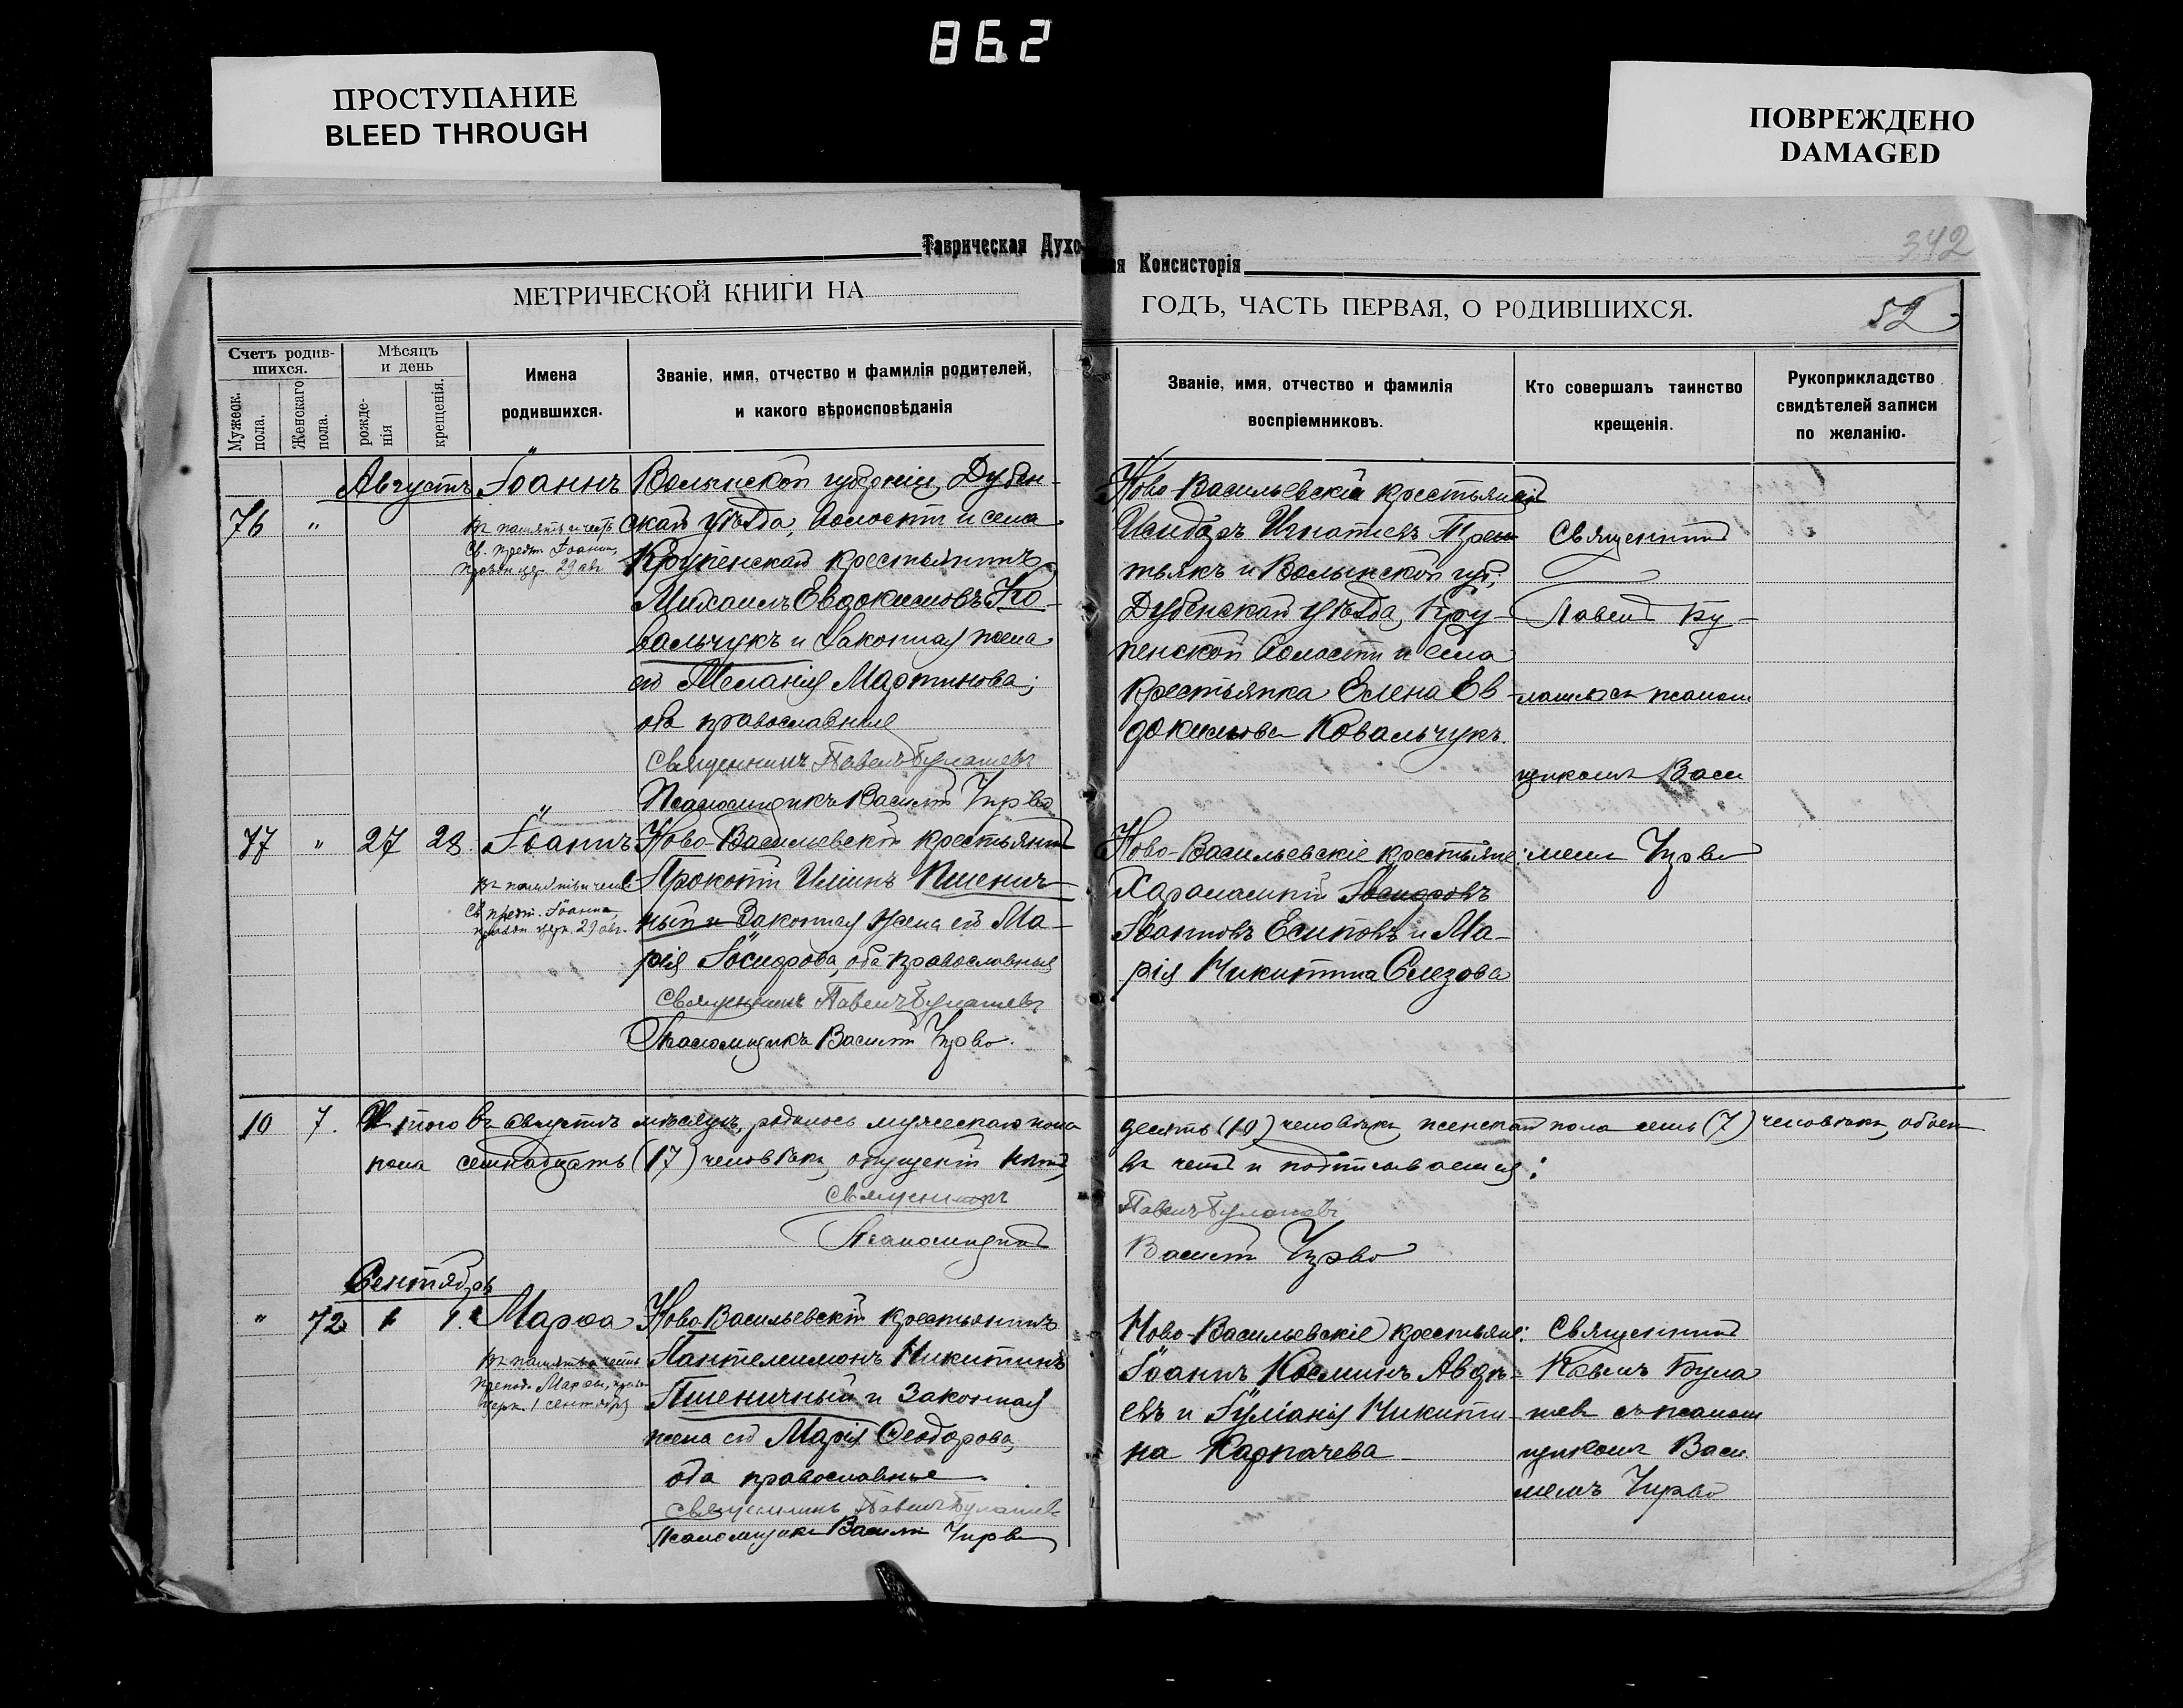 862
ПРОСТУПАНИЕ
BLEED THROUGH
ПОВРЕЖДЕНО
DAMAGED
342
Таврическая Духо
ая Консисторія
МЕТРИЧЕСКОЙ КНИГИ НА
ГОДЪ, ЧАСТЬ ПЕРВАЯ, О РОДИВШИХСЯ.
52
Счетъ родив-
шихся.
Мужеск.
пола.
Женскаго
пола.
Мѣсяцъ
и день
рожде-
нія
крещенія.
Имена
родившихся.
Званіе, имя, отчество и фамилія родителей,
и какого вѣроисповѣданія
Званіе, имя, отчество и фамилія
воспріемниковъ.
Кто совершалъ таинство
крещенія.
Рукоприкладство
свидѣтелей записи
по желанію.
Августъ
76 "
Іоаннъ
въ память и честь
Св. предт. Іоанна,
праздн. цер. 29 авг.
Волынской губерніи, Дубен-
скаго уѣзда, волости и села
Крупенскаго крестьянинъ
Михаилъ Евдокимовъ Ко-
вальчукъ и законная жена
его Меланія Мартинова;
оба православные
Священникъ Павелъ Булашевъ
Псаломщикъ Василій Чирво
Ново-Васильевскій крестьянинъ
Исидоръ Игнатіевъ
тьякъ и Волынской губ.
Дубенскаго уѣзда, Кру-
пенской волости и села
крестьянка Елена Ев-
докимова Ковальчукъ.
Священникъ
Павелъ Бу-
лашевъ съ псалом
щикомъ Васи
ліемъ Чирво
77 " 27 28.
Іоаннъ
въ память и честь
Св. предт. Іоанна,
празднуем. цер. 29 авг.
Ново-Васильевскій крестьянинъ
Прокопій Илiинъ Пшенич-
ный и законная жена его Ма-
рія Іосифова, оба православные
Священникъ Павелъ Булашевъ
Псаломщикъ Василій Чирво.
Ново-Васильевскіе крестьяне:
Харалампій Іосифовъ
Іоанновъ Есиповъ и Ма-
рія Никитина Слезова
10 7. Итого въ августѣ мѣсяцѣ родилось мужескаго пола
десять (10) человѣкъ, женскаго пола семь (7) человѣкъ, обоего
пола семнадцать (17) человѣкъ,
въ чемъ и подписываемся:
Священникъ
Павелъ Булашевъ
Псаломщикъ
Василій Чирво
Сентябрь
" 72 1 1.
Марѳа
въ память и честь
препод. Марѳы,
церк. 1 сентября
Ново-Васильевскій крестьянинъ
Пантелеимонъ Никитинъ
Пшеничный и законная
жена его Марія Ѳеодорова,
оба православные.
Священникъ Павелъ Булашевъ
Псаломщикъ Василій Чирво
Ново-Васильевскіе крестьяне:
Іоаннъ Косминъ Авдѣ-
евъ и Іуліанія Никити-
на Карпачева
Священникъ
Павелъ Була
шевъ съ псалом
щикомъ Васи-
ліемъ Чирво